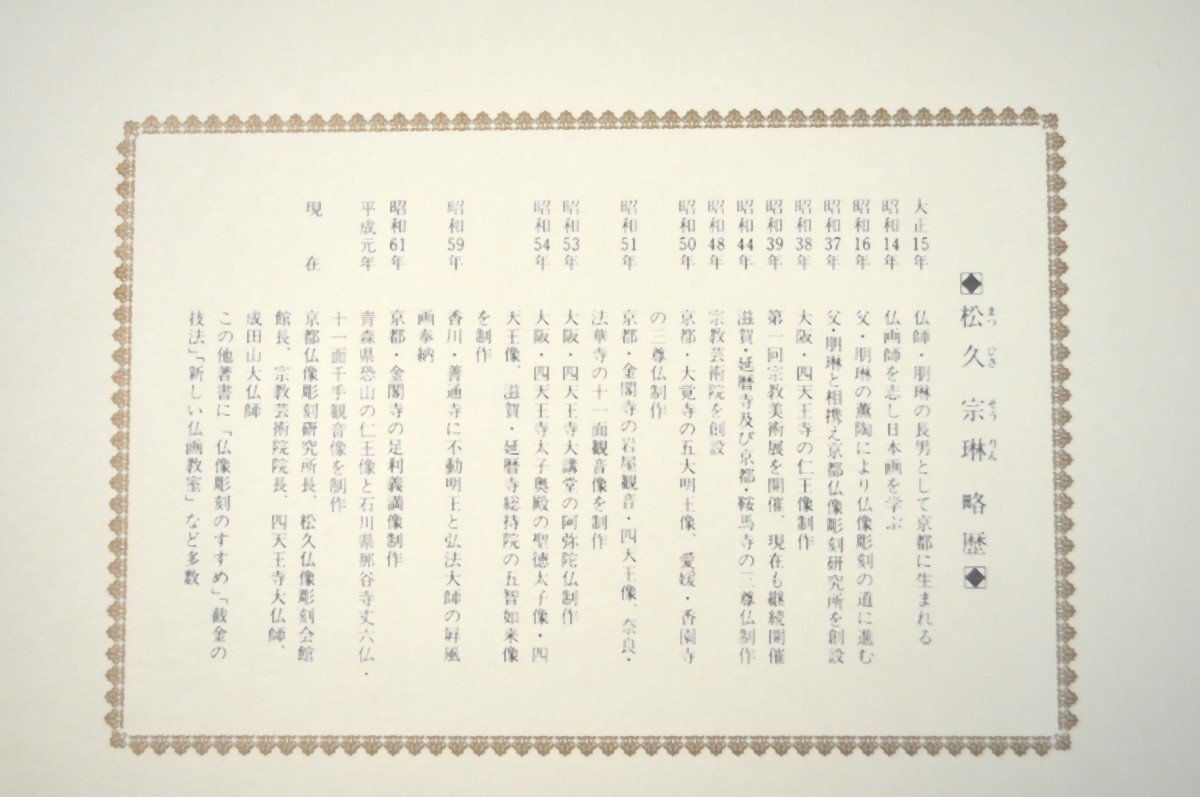 ◆松久宗琳略歴◆
まつ ひさ そう りん
大正15年 仏師・朋琳の長男として京都に生まれる
昭和14年 仏画師を志し日本画を学ぶ
昭和16年 父・朋琳の薫陶により仏像彫刻の道に進む
昭和37年 父・朋琳と相携え京都仏像彫刻研究所を創設
昭和38年 大阪・四天王寺の仁王像制作
昭和39年 第一回宗教美術展を開催、現在も継続開催
昭和44年 滋賀・延暦寺及び京都・鞍馬寺の三尊仏制作
昭和48年 宗教芸術院を創設
昭和50年 京都・大覚寺の五大明王像、愛媛・香園寺
の三尊仏制作
昭和51年 京都・金閣寺の岩屋観音・四天王像、奈良・
法華寺の十一面観音像を制作
昭和53年 大阪・四天王寺大講堂の阿弥陀仏制作
昭和54年 大阪・四天王寺太子奥殿の聖徳太子像・四
天王像、滋賀・延暦寺総持院の五智如来像
を制作
昭和59年 香川・善通寺に不動明王と弘法大師の屏風
画奉納
昭和61年 京都・金閣寺の足利義満像制作
平成元年 青森県恐山の仁王像と石川県那谷寺丈六仏・
十一面千手観音像を制作
現在 京都仏像彫刻研究所長、松久仏像彫刻会館
館長、宗教芸術院院長、四天王寺大仏師、
成田山大仏師
この他著書に「仏像彫刻のすすめ」「截金の
技法」「新しい仏画教室」など多数